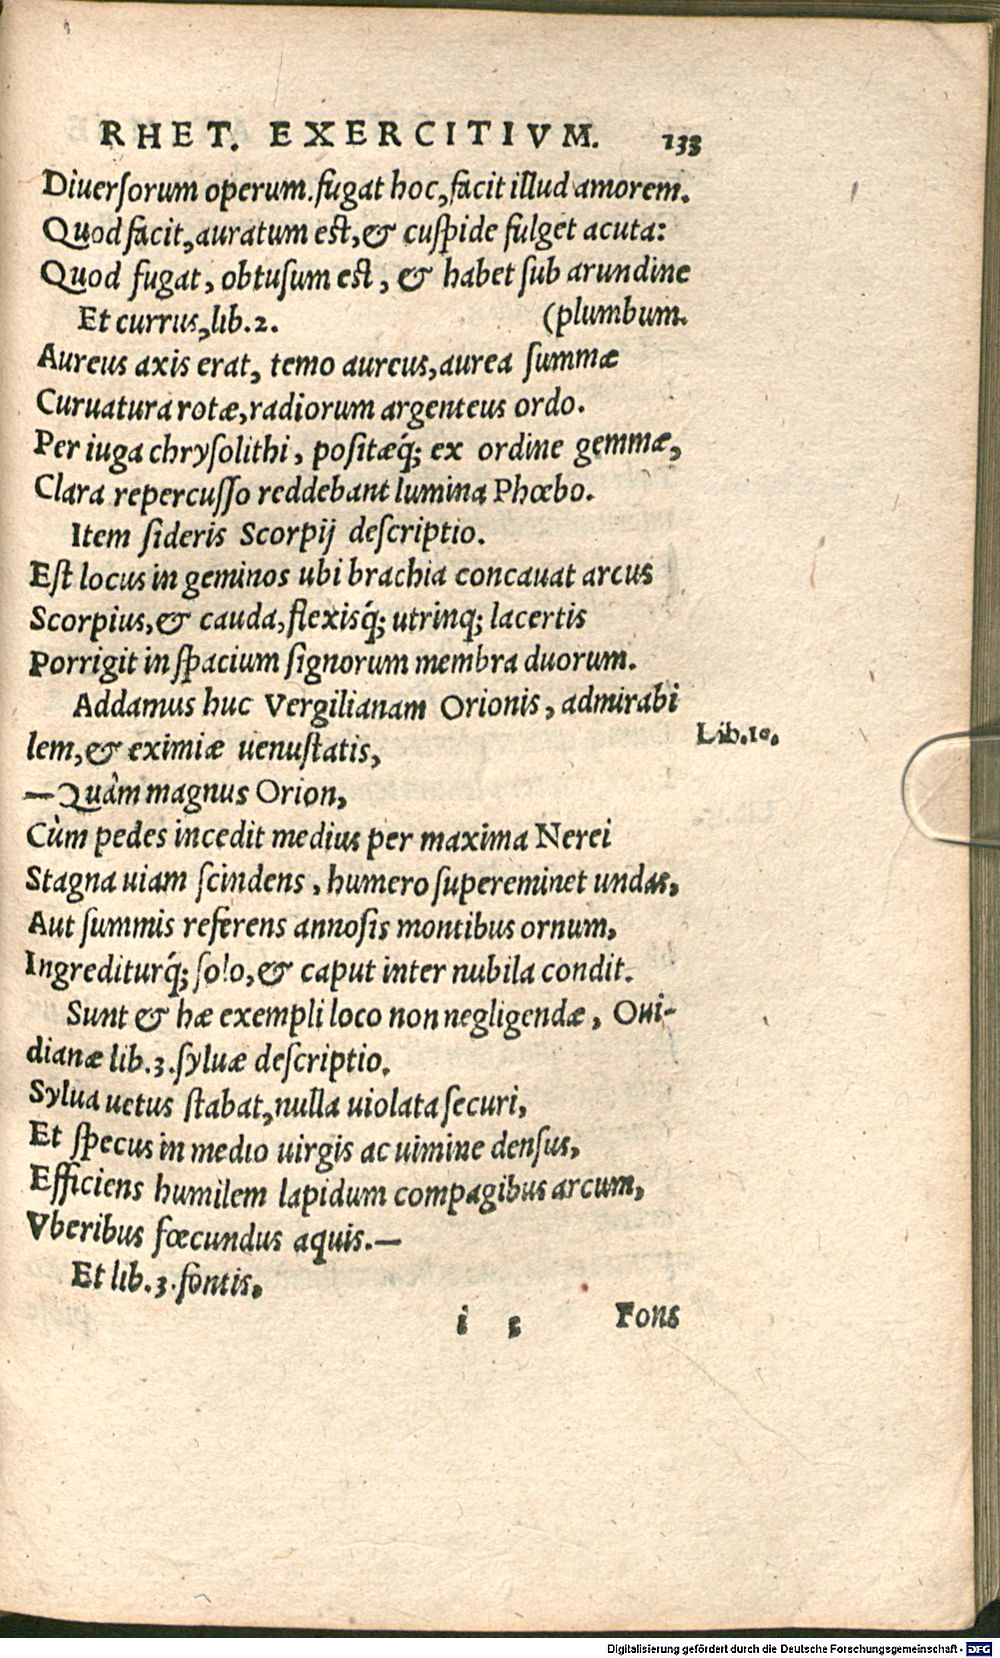 RHET. EXERCITIVM. 133
Diuerſorum operum. fugat hoc, facit illud amorem.
Quod facit, auratum eſt, & cuſpide fulget acuta:
Quod fugat, obtuſum eſt, & habet ſub arundine
Et currus, lib. 2. (plumbum.
Aureus axis erat, temo aureus, aurea ſummæ
Curuatura rotæ, radiorum argenteus ordo.
Per iuga chryſolithi, poſitæq́; ex ordine gemmæ,
Clara repercuſſo reddebant lumina Phœbo.
Item ſideris Scorpij deſcriptio.
Eſt locus in geminos ubi brachia concauat arcus
Scorpius, & cauda, flexisq́; utrinq; lacertis
Porrigit in ſpacium ſignorum membra duorum.
Addamus huc Vergilianam Orionis, admirabi
lem, & eximiæ uenuſtatis,
Lib. 10.
—Quàm magnus Orion,
Cùm pedes incedit medius per maxima Nerei
Stagna uiam ſcindens, humero ſupereminet undas,
Aut ſummis referens annoſis montibus ornum,
Ingrediturq́; ſolo, & caput inter nubila condit.
Sunt & hæ exempli loco non negligendæ, Oui-
dianæ lib. 3. ſyluæ deſcriptio.
Sylua uetus ſtabat, nulla uiolata ſecuri,
Et ſpecus in medio uirgis ac uimine denſus,
Efficiens humilem lapidum compagibus arcum,
Vberibus fœcundus aquis.—
Et lib. 3. fontis.
i 5 Fons
Digitalisierung gefördert durch die Deutsche Forschungsgemeinschaft - DFG